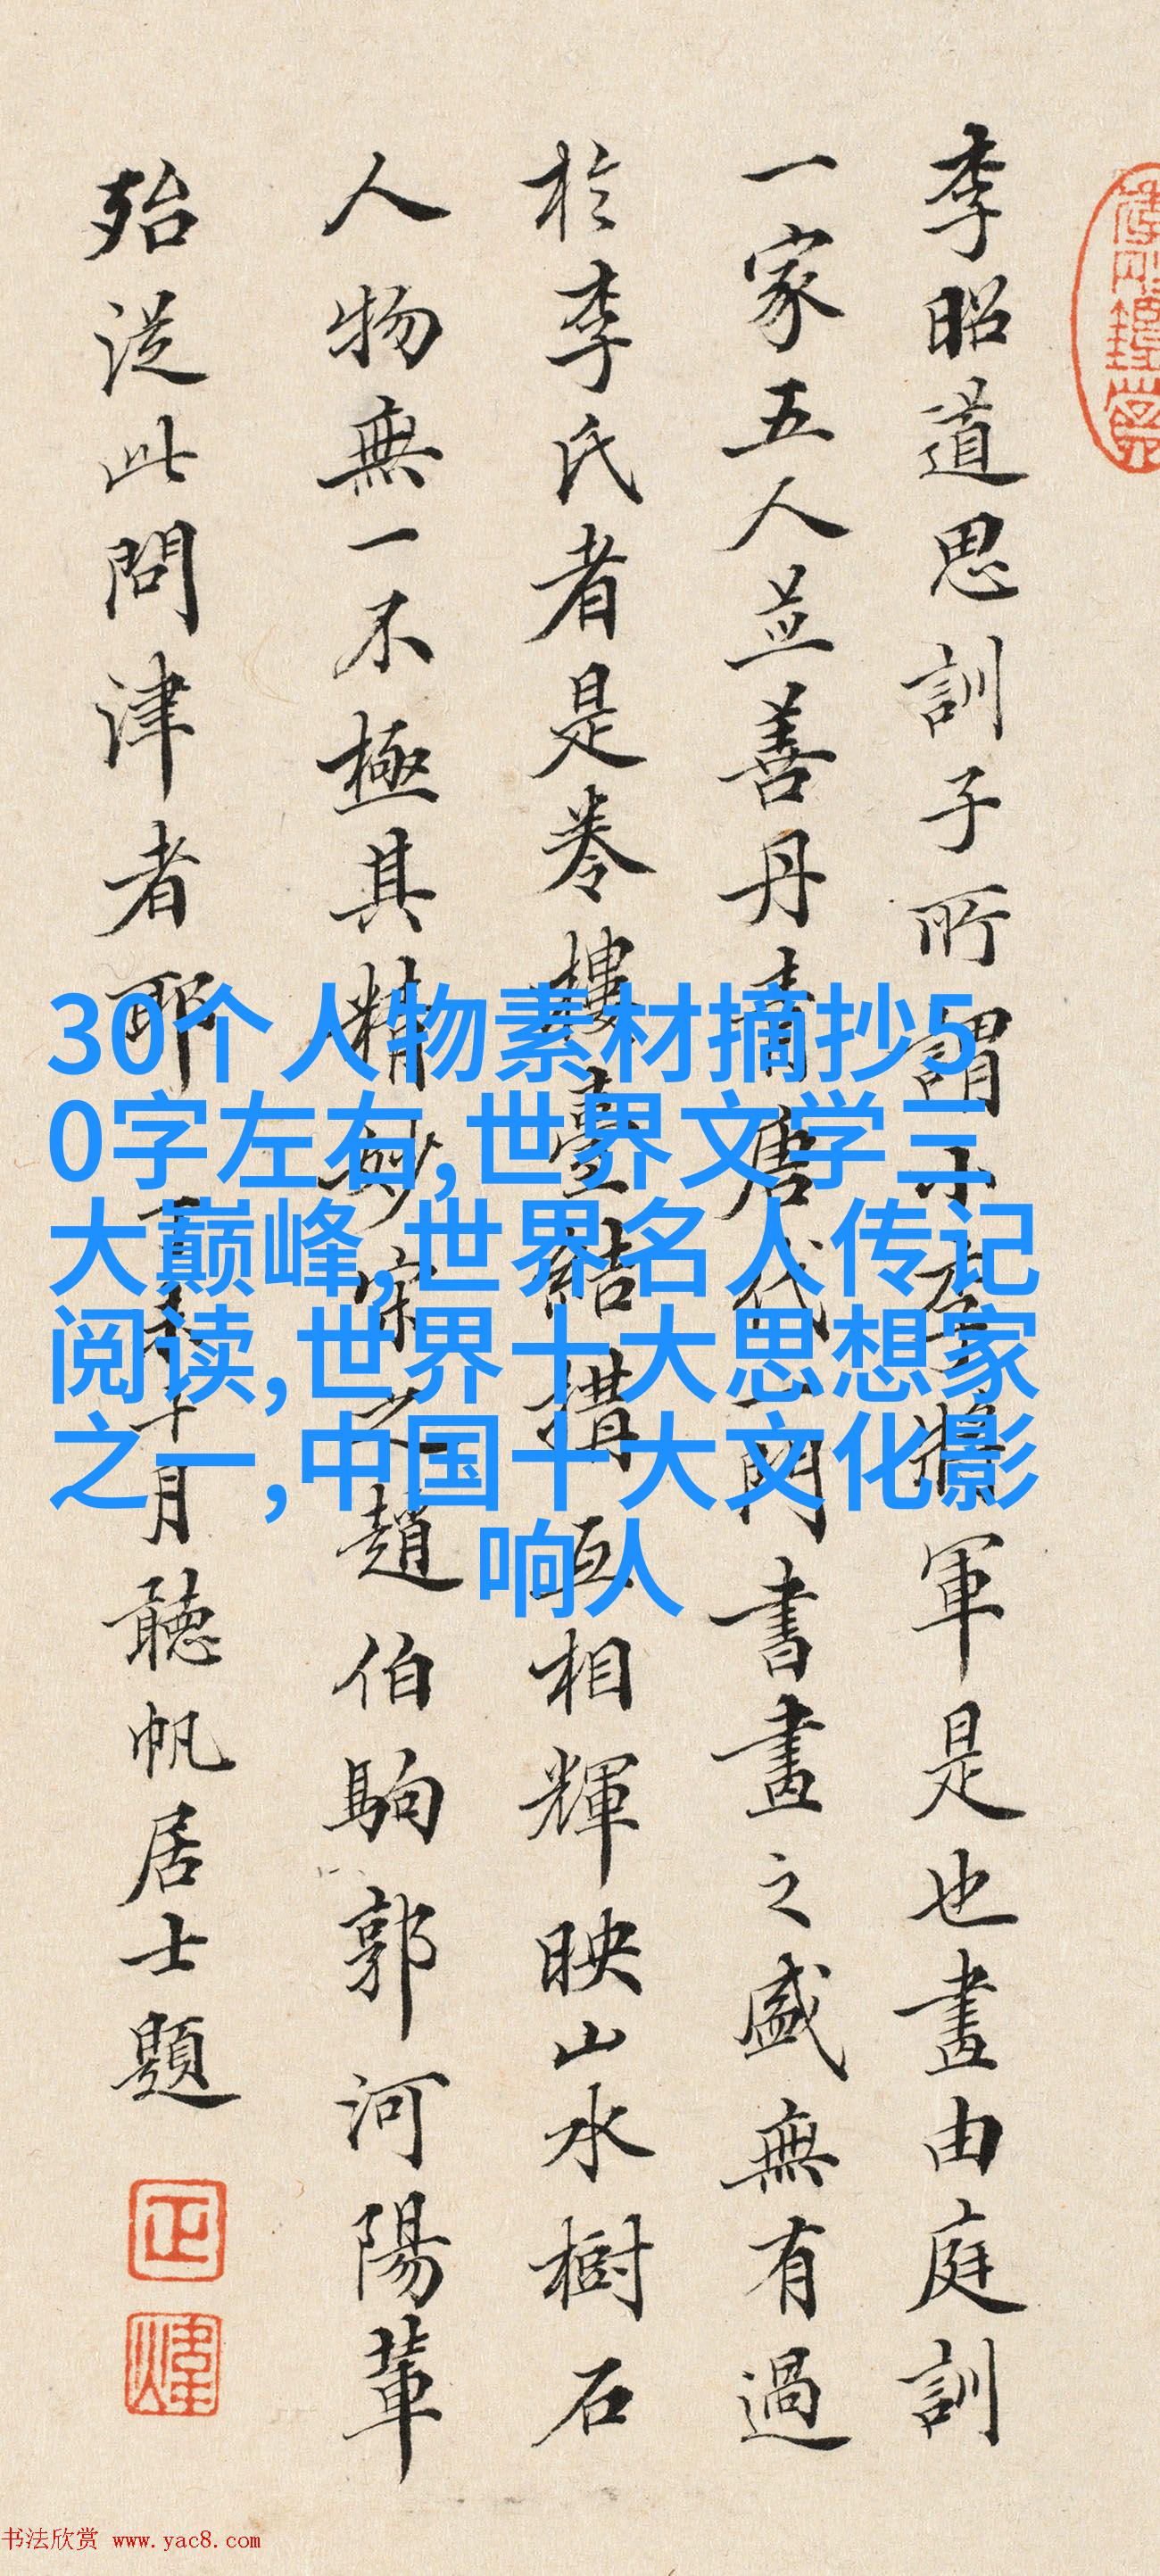 李昭道思訓子所謂小李將軍是也畫由庭訓
一家五人並善丹青唐代一門書畫之盛無有過
於李氏者是卷樓臺結構互相輝映山水樹石
人物無一不極其精妙宋之趙伯駒郭河陽輩
殆從此問津者耶十月聽帆居士題
正
煒
30个人物素材摘抄5
0字左右,世界文学三
大巅峰,世界名人传记
阅读,世界十大思想家
之一,中国十大文化影
响人
书法欣赏 www.yac8.com